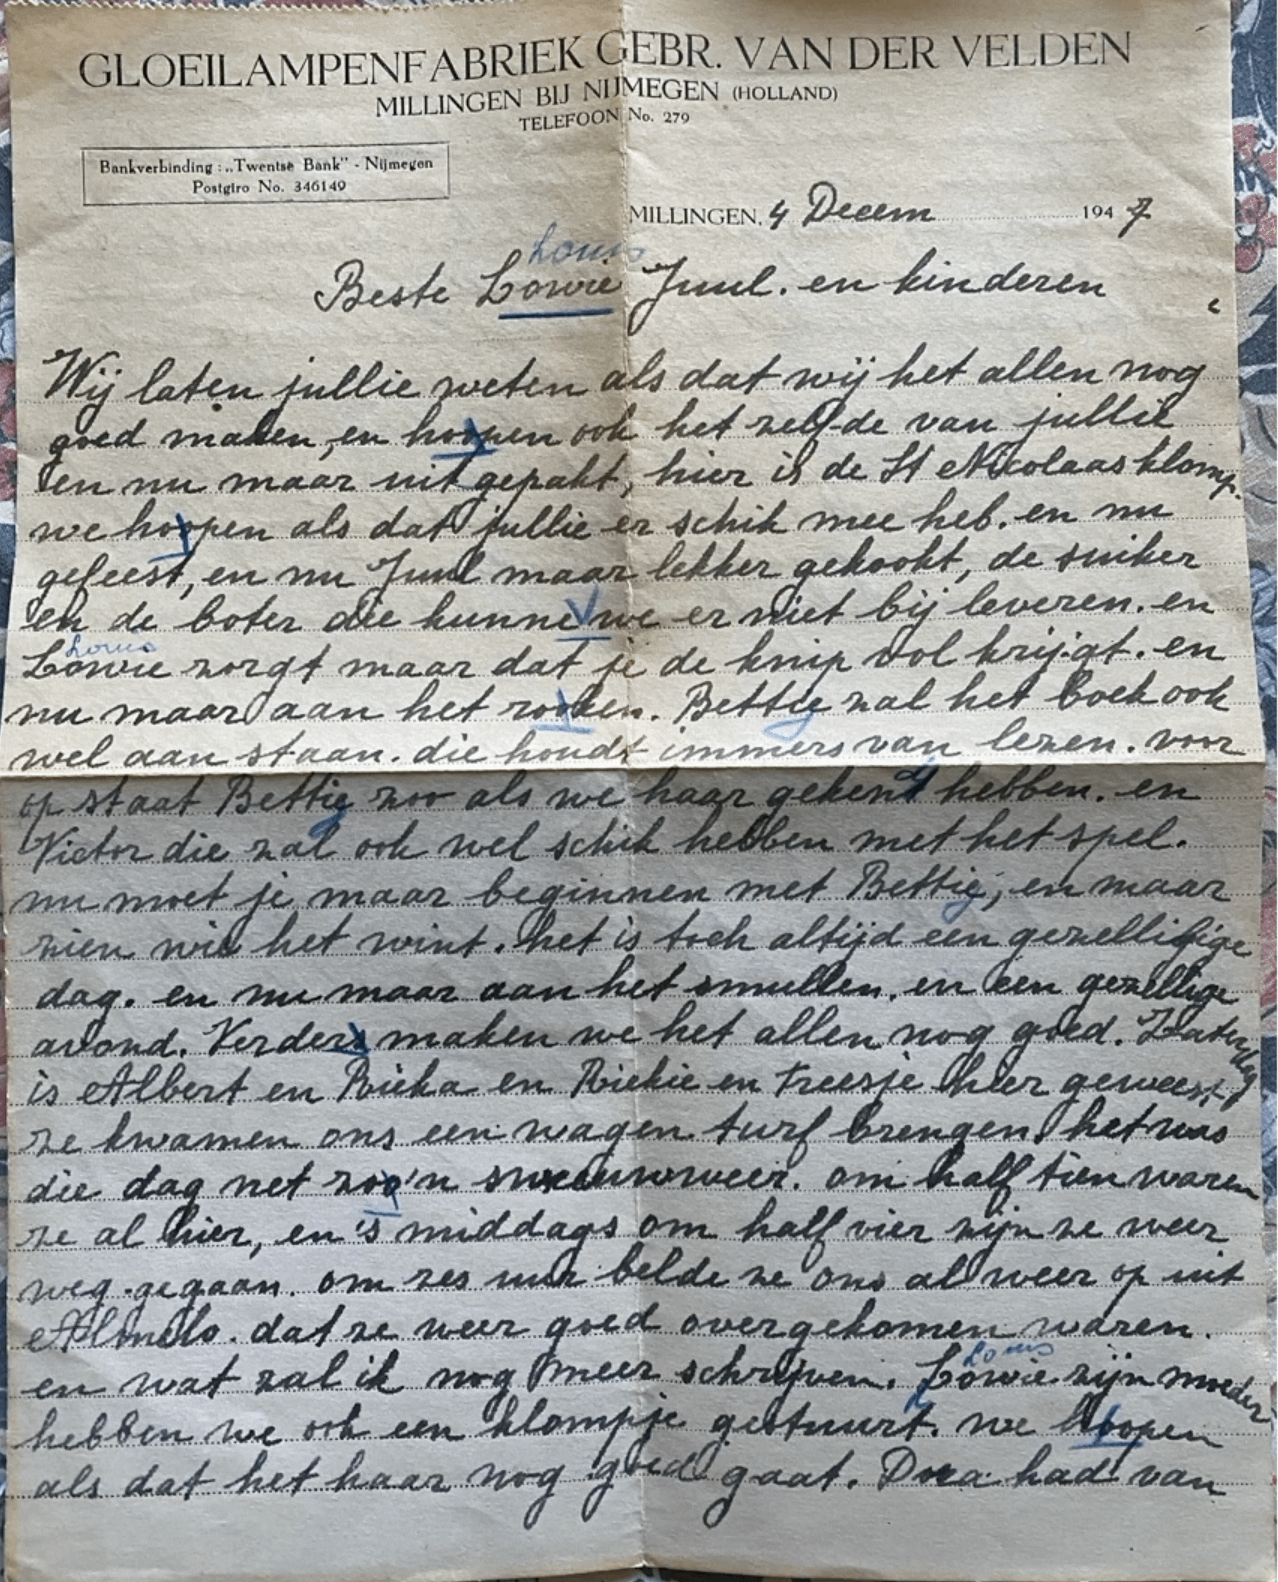 GLOEILAMPENFABRIEK GEBR. VAN DER VELDEN
MILLINGEN BIJ NIJMEGEN (HOLLAND)
TELEFOON No. 279
Bankverbinding : „Twentse Bank" - Nijmegen
Postgiro No. 346149
MILLINGEN, 4 Decem 1947
Louis
Beste Lowie Juul. en kinderen
Wij laten jullie weten als dat wij het allen nog
goed maken, en hoopen ook het zelfde van jullie
en nu maar uit gepakt, hier is de St Nicolaas klomp.
we hoopen als dat jullie er schik mee heb. en nu
gefeest, en nu Juul maar lekker gekookt, de suiker
en de boter die kunne we er niet bij leveren. en
Louis
Lowie zorgt maar dat je de knip vol krijgt. en
nu maar aan het rooken. Bettie zal het boek ook
wel aan staan. die houdt immers van lezen. voor
op staat Bettie zoo als we haar gekend hebben. en
Victor die zal ook wel schik hebben met het spel.
nu moet je maar beginnen met Bettie, en maar
zien wie het wint. het is toch altijd een gezellige
dag. en nu maar aan het smullen. en een gezellige
avond. Verders maken we het allen nog goed. Zaterdag
is Albert en Rieka en Riekie en Treesje hier geweest
ze kwamen ons een wagen turf brengen. het was
die dag net zoo'n sneeuwweer. om half tien waren
ze al hier, en 's middags om half vier zijn ze weer
weg gegaan. om zes uur belde ze ons al weer op uit
Almelo. dat ze weer goed overgekomen waren.
Louis
en wat zal ik nog meer schrijven. Lowie zijn moeder
hebben we ook een klompje gestuurt. we hoopen
als dat het haar nog goed gaat. Dora had van